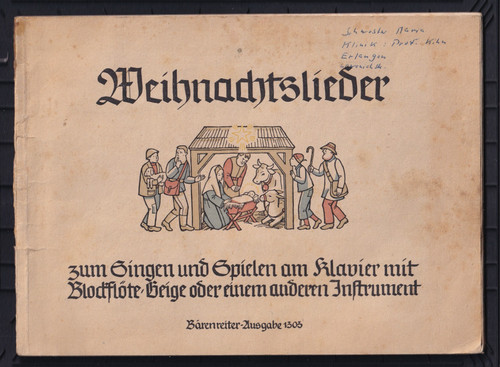 Schwester Maria
Klinik: Prof.
Erlangen
Weihnachtslieder
zum Singen und Spielen am Klavier mit
Blockflöte, Geige oder einem anderen Instrument
Bärenreiter-Ausgabe 1305